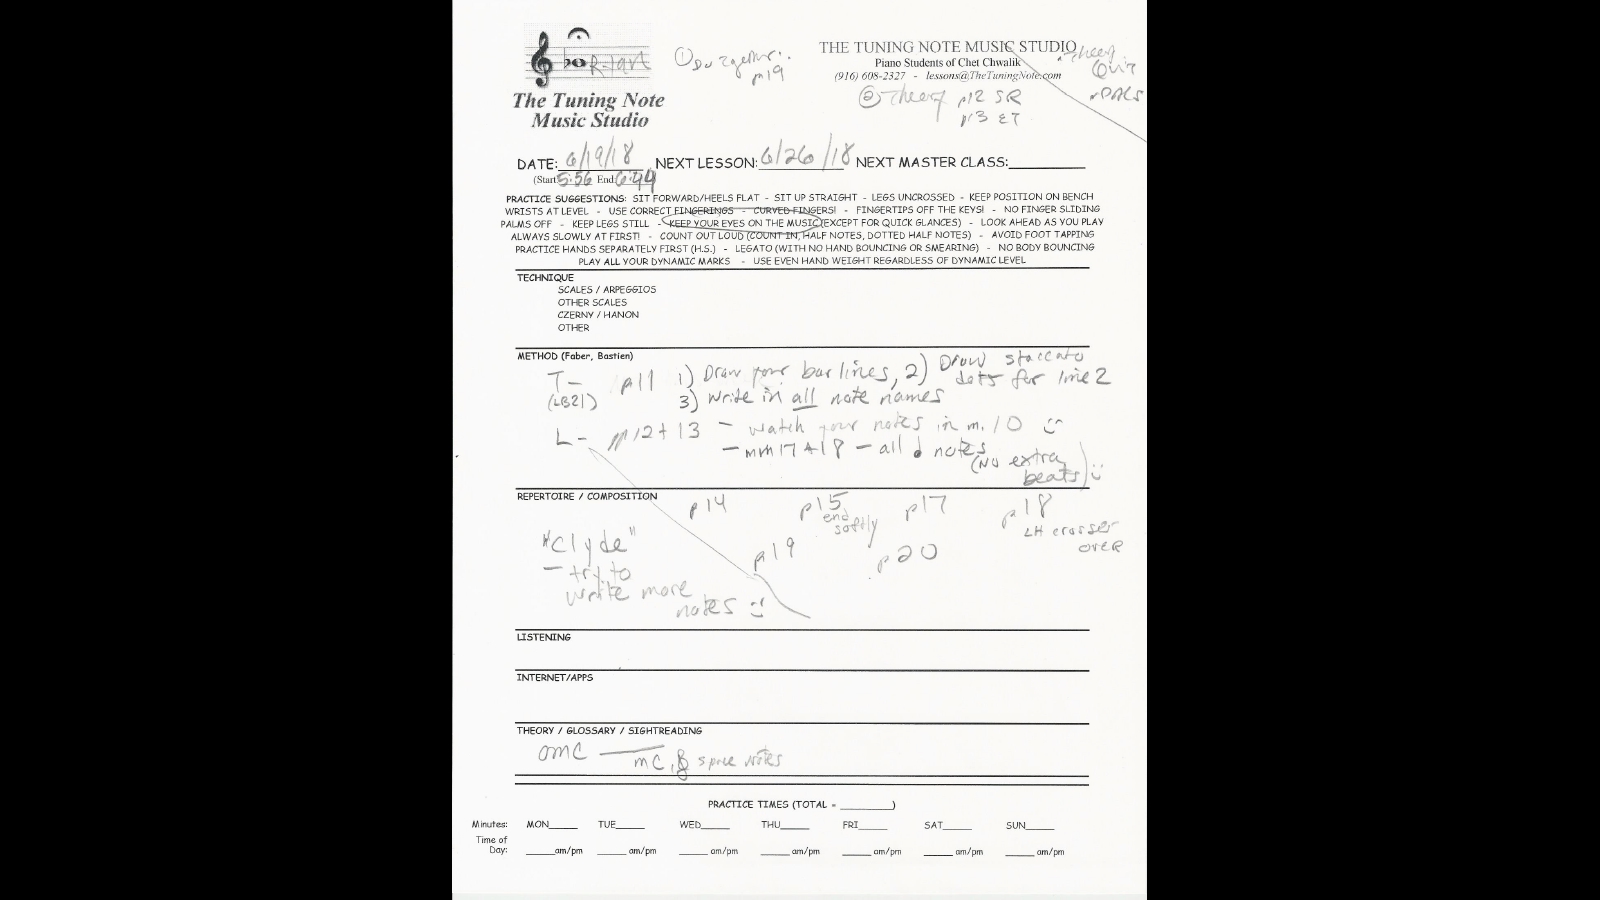 The Tuning Note
Music Studio
① p19
THE TUNING NOTE MUSIC STUDIO
Piano Students of Chet Chwalik
(916) 608-2327 - lessons@TheTuningNote.com
② Theory p12 SR
p13 ET
Theory
DATE: 6/19/18 NEXT LESSON: 6/26/18 NEXT MASTER CLASS:
(Start 5:56 End: 6:44
PRACTICE SUGGESTIONS: SIT FORWARD/HEELS FLAT - SIT UP STRAIGHT - LEGS UNCROSSED - KEEP POSITION ON BENCH
WRISTS AT LEVEL - USE CORRECT FINGERINGS - CURVED FINGERS! - FINGERTIPS OFF THE KEYS! - NO FINGER SLIDING
PALMS OFF - KEEP LEGS STILL - KEEP YOUR EYES ON THE MUSIC (EXCEPT FOR QUICK GLANCES) - LOOK AHEAD AS YOU PLAY
ALWAYS SLOWLY AT FIRST! - COUNT OUT LOUD (COUNT IN, HALF NOTES, DOTTED HALF NOTES) - AVOID FOOT TAPPING
PRACTICE HANDS SEPARATELY FIRST (H.S.) - LEGATO (WITH NO HAND BOUNCING OR SMEARING) - NO BODY BOUNCING
PLAY ALL YOUR DYNAMIC MARKS - USE EVEN HAND WEIGHT REGARDLESS OF DYNAMIC LEVEL
TECHNIQUE
SCALES / ARPEGGIOS
OTHER SCALES
CZERNY / HANON
OTHER
METHOD (Faber, Bastien)
T - p11 1) Draw your bar lines, 2) Draw staccato
dots for line 2
(LB21) 3) Write in all note names
L - pp12+13 - watch your notes in m. 10
- mm17+18 - all notes
(No extra
beats)
REPERTOIRE / COMPOSITION
p14 p15 p17 p18
end
softly
LH crosses
over
"Clyde" p19 p20
- try to
write more
notes
LISTENING
INTERNET/APPS
THEORY / GLOSSARY / SIGHTREADING
OMC
MC, space notes
PRACTICE TIMES (TOTAL = ________)
Minutes: MON_____ TUE_____ WED_____ THU_____ FRI_____ SAT_____ SUN_____
Time of
Day: _____am/pm _____ am/pm _____ am/pm _____ am/pm _____ am/pm _____ am/pm _____ am/pm